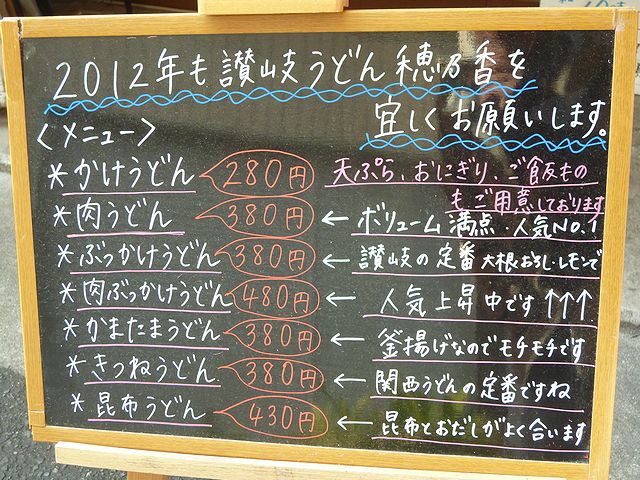 2012年も讃岐うどん穂乃香を
宜しくお願いします。
<メニュー>
*かけうどん 280円 天ぷら、おにぎり、ご飯もの
もご用意しております
*肉うどん 380円 ← ボリューム満点・人気No.1
*ぶっかけうどん 380円 ← 讃岐の定番 大根おろし・レモンで
*肉ぶっかけうどん 480円 ← 人気上昇中です↑↑↑
*かまたまうどん 380円 ← 釜揚げなのでモチモチです
*きつねうどん 380円 ← 関西うどんの定番ですね
*昆布うどん 430円 ← 昆布とおだしがよく合います